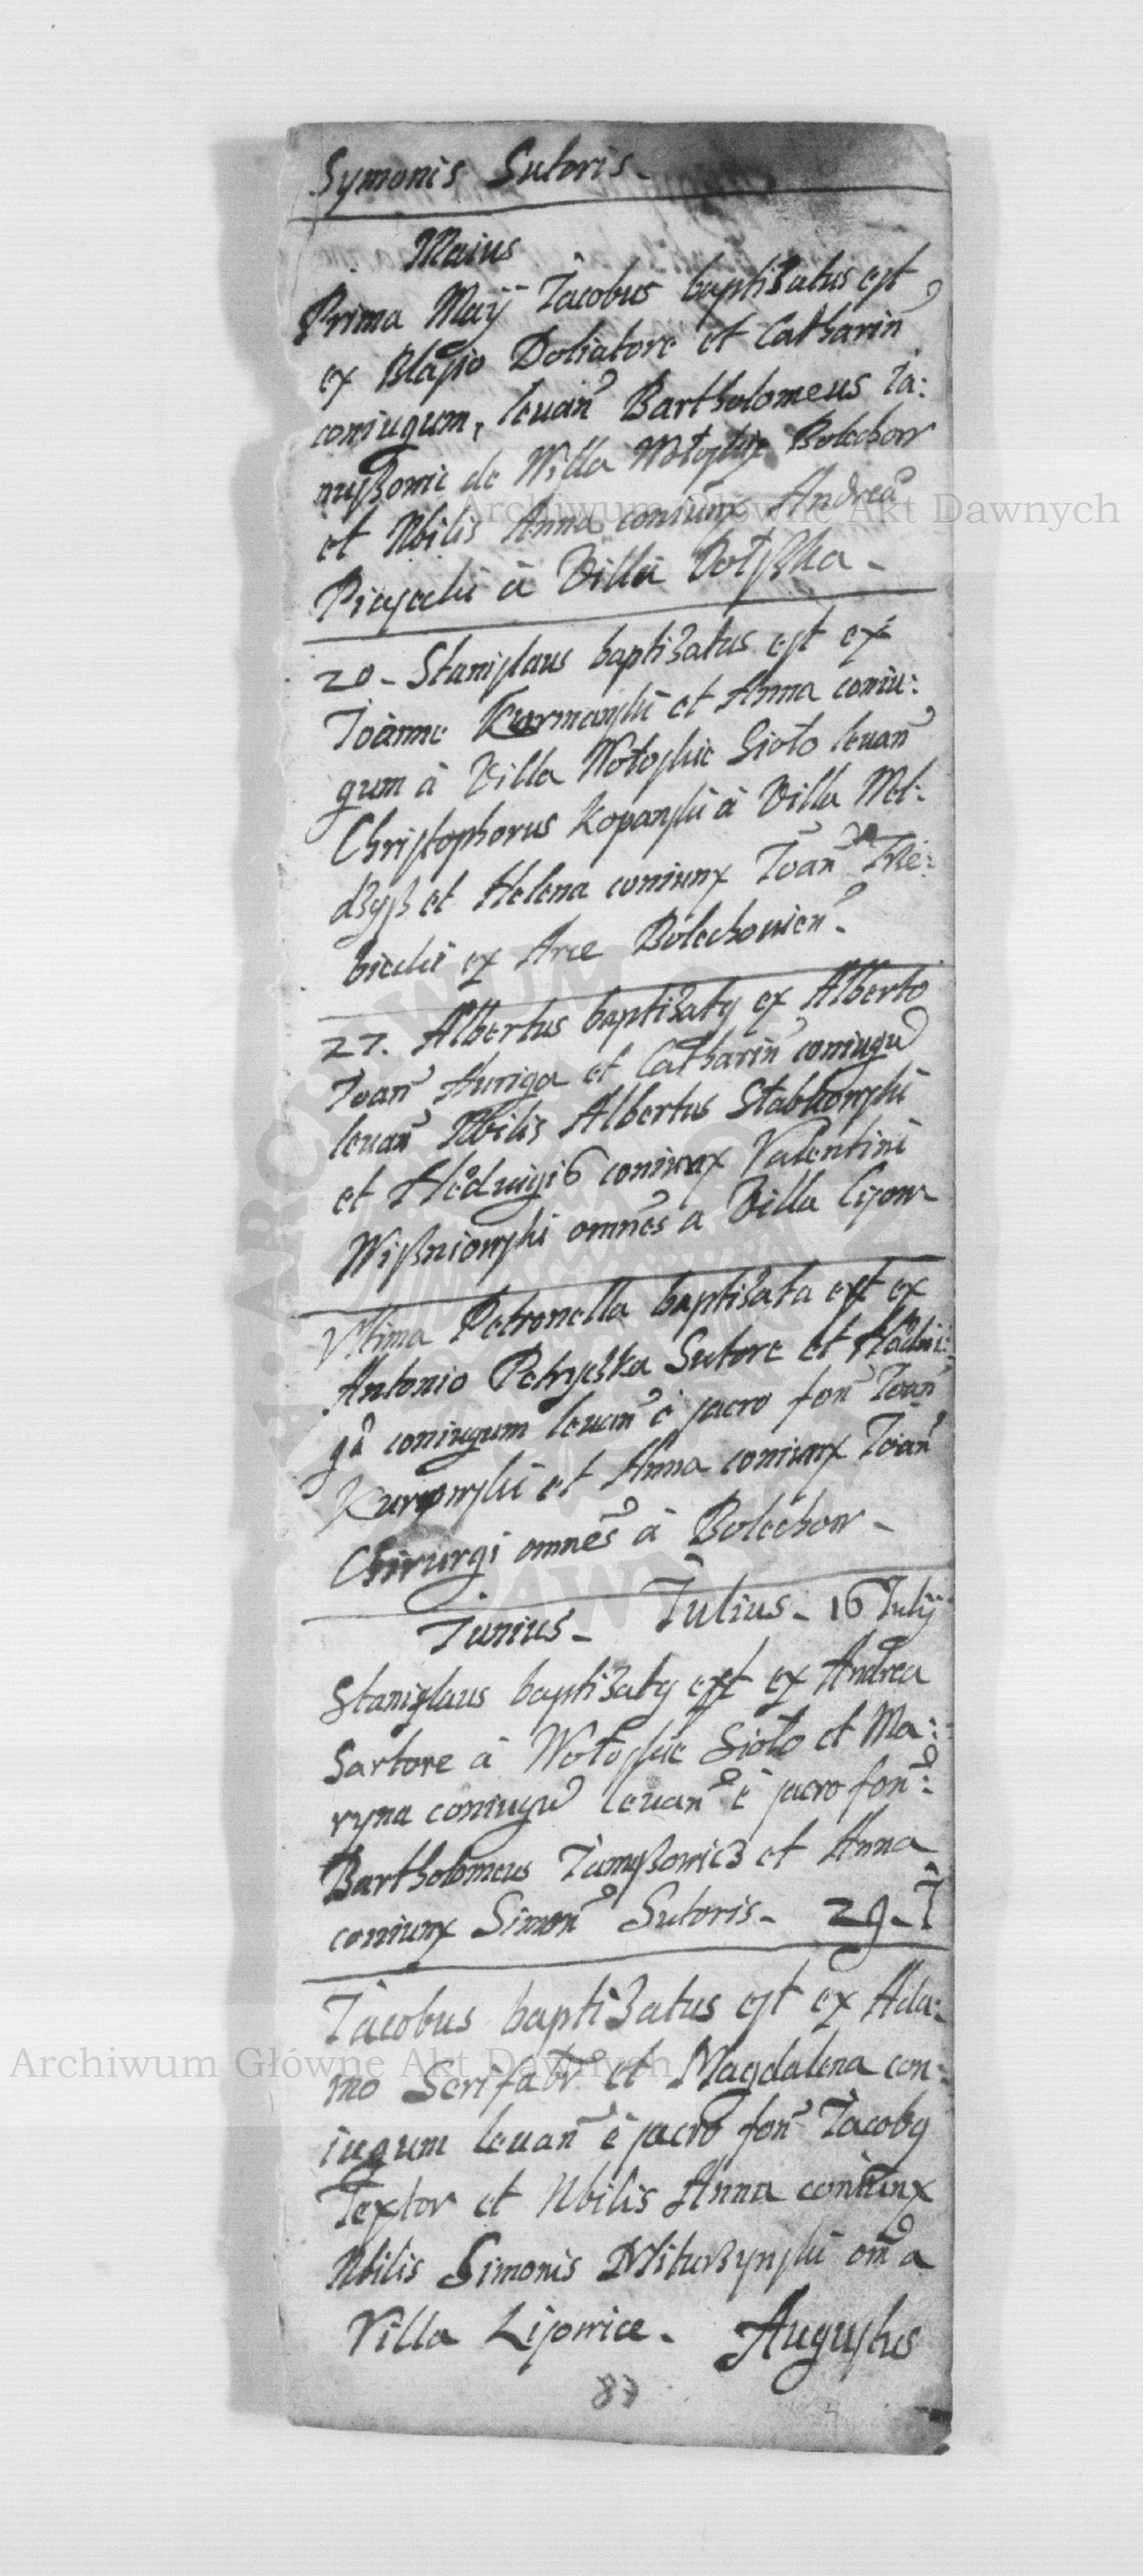 Symonis Sutoris-
Maius
Prima Maij Jacobus baptisatus est
ex Blasio Doliatore et Catharin
coniugum, levan Bartholomeus Ja:
nußowic de Willa Wołoskie Bolechow
et Nbilis Anna coniunx Andreae
Piasecki à Villa Wołoska -
20 - Stanislaus baptisatus est ex
Joanne Kurmanski et Anna coniu:
gum à Villa Wołoskie Sioło levan
Christophorus Kopanski à Villa Wol:
et Helena coniunx Joan
biecki ex Arce Bolechovien -
27. Albertus baptisaty ex Alberto
Joan Auriga et Catharin coniugu
levan Nbilis Albertus Stabkowski
et Hedvigis coniunx Valentini
Wißniowski omnes a Villa Cisow
Vltima Petronella baptisata est ex
Antonio Petryczka Sutore et Hedvi:
gâ coniugum levan è sacro fon Joan
et Anna coniunx Joan
Chirurgi omnes à Bolechow -
Junius - Julius - 16 Julij
Stanislaus baptisaty est ex Andrea
Sartore à Wołoskie Sioło et Ma:
ryna coniugu levan è sacro fon:
Bartholomeus Janußowicz et Anna
coniunx Simon Sutoris - 29 - J
Jacobus baptisatus est ex Ada:
mo Serifabr et Magdalena con:
iugum levan è sacro fon Jacoby
Textor et Nbilis Anna coniunx
Nbilis Simonis Wituszynski om a
Villa Lisowice - Augustus
87
Archiwum Główne Akt Dawnych
Archiwum Główne Akt Dawnych